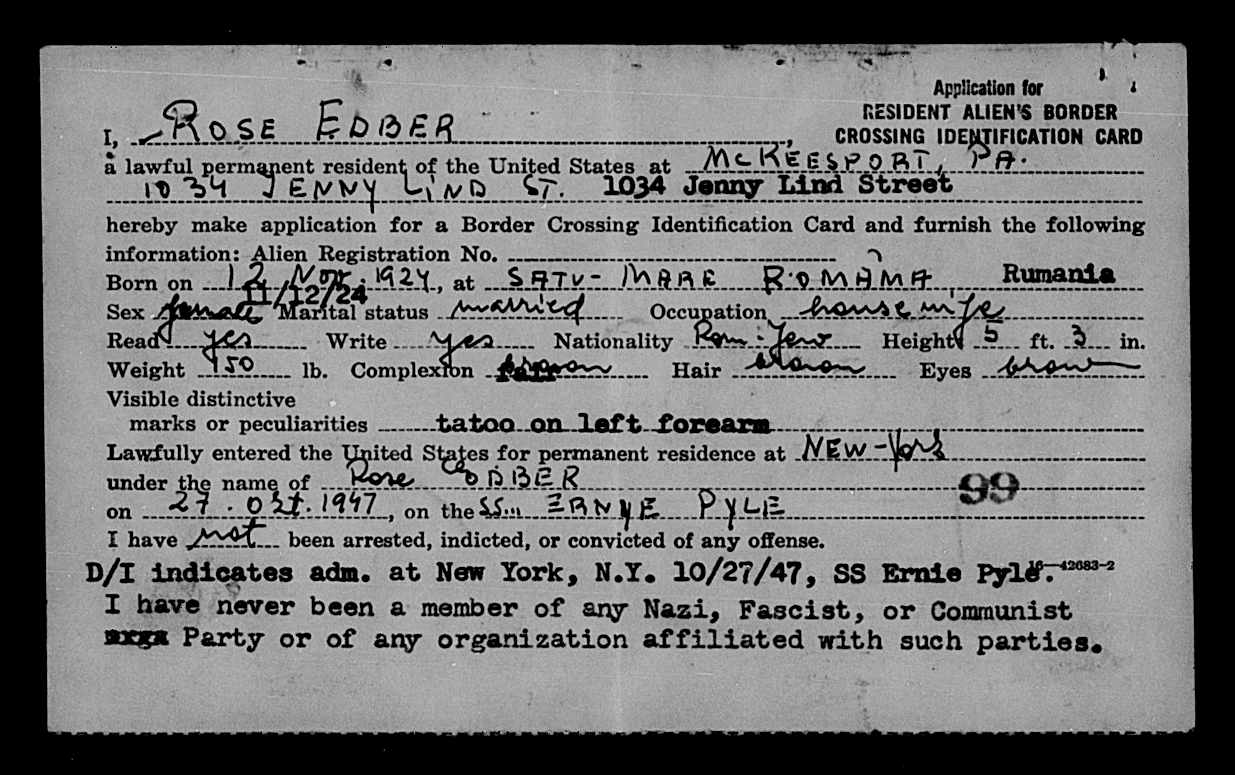 Application for
RESIDENT ALIEN'S BORDER
CROSSING IDENTIFICATION CARD
I, ROSE EDBER,
a lawful permanent resident of the United States at McKEESPORT, PA.
1034 JENNY LIND ST. 1034 Jenny Lind Street
hereby make application for a Border Crossing Identification Card and furnish the following
information: Alien Registration No.
Born on 12 Nov. 1924, at SATU-MARE ROMAMA Rumania
11/12/24
Sex female Marital status married Occupation housewife
Read yes Write yes Nationality Rom: Jew Height 5 ft. 3 in.
Weight 150 lb. Complexion Hair brown Eyes brown
Visible distinctive
marks or peculiarities tatoo on left forearm
Lawfully entered the United States for permanent residence at NEW-York
under the name of Rose EDBER
99
on 27. Oct. 1947, on the SS. ERNYE PYLE
I have not been arrested, indicted, or convicted of any offense.
D/I indicates adm. at New York, N.Y. 10/27/47, SS Ernie Pyle. 16—42683-2
I have never been a member of any Nazi, Fascist, or Communist
Party or of any organization affiliated with such parties.